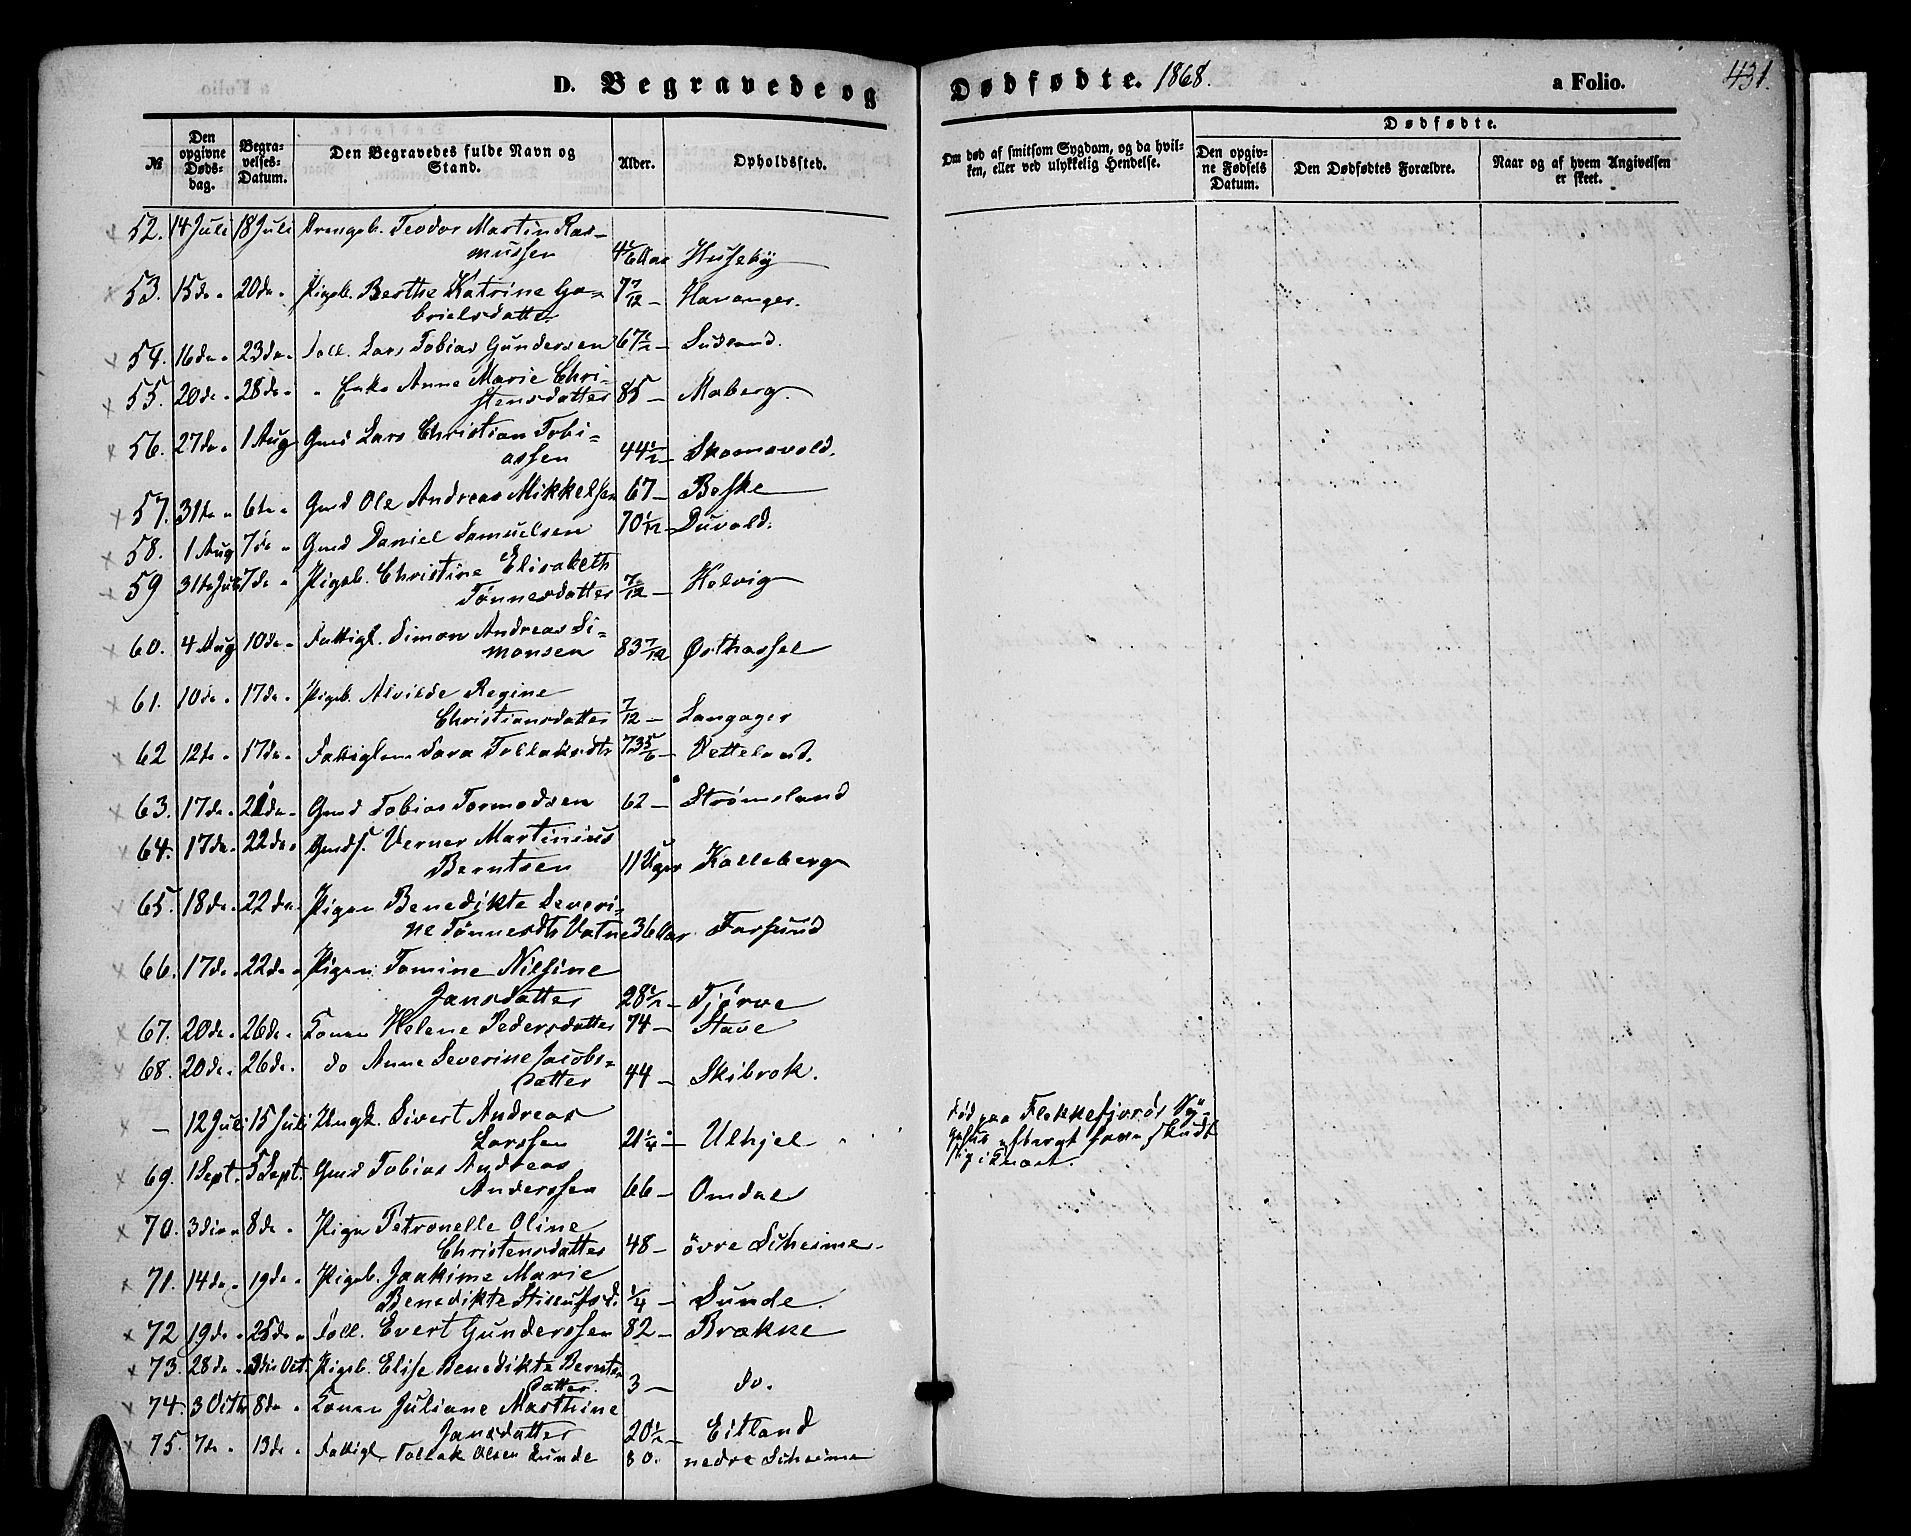 D. Begravede og Dødfødte. 1868. a Folio. 431.
№ Den opgivne Dødsdag. Begravelses-Datum. Den Begravedes fulde Navn og Stand. Alder. Opholdssted. Om død af smitsom Sygdom, og da hvilken, eller ved ulykkelig Hendelse. Dødfødte. Den opgivne Fødsels Datum. Den Dødfødtes Forældre. Naar og af hvem Angivelsen er skeet.
52. 14 Juli 18 Juli Drengeb. Teodor Martin Ras-
mussen Huseby
53. 15 de 20 de Pigeb. Berthe Katrine Ga-
brielsdatter 7 7/12 – Havanger.
54. 16 de 23 de Foll. Lars Tobias Gundersen 67 1/2 –
55. 20 de 28 de Enke Anne Marie Chri-
stensdatter 85 – Maberg.
56. 27 de 1 Aug Gmd Lars Christian Tobi-
assen 44 1/2 – Skomevold.
57. 31te 6te Gmd Ole Andreas Mikkelsen 67 – Boske
58. 1 Aug 7de Gmd Daniel Samuelsen 70 1/12 – Duvold.
59 31te Juli 7de Pigeb. Christine Elisabeth
Tønnesdatter 7/12 – Helvig
60. 4 Aug 10de Fattigl. Simon Andreas Si-
monsen 83 7/12 Østhassel
61. 10de 17de Pigeb. Alvilde Regine
Christiansdatter 7/12 – Langager
62 12te 17de Sara Tollaksdtr 73 5/6 – Vetteland.
63. 17de 21de Gmd Tobias Tormodsen 62 – Strømsland
64. 17de 22de Gmds. Verner Martinius
Berntsen 11 Uger Kalleberg
65. 18de 22de Pigen Benedikte Severi-
ne Tønnesdtr Vatne 36 Aar Farsund
66. 17de 22de Pigen Tomine Nilsine
Jansdatter 28 1/2 – Tjørve
67. 20de 26de Konen Helene Pedersdatter 74 – Stave
68. 20de 26de do Anne Severine Jacobs-
datter 44 – Skibrok.
– 12 Juli 15 Juli Ungk. Sivert Andreas
Larssen 21 1/4 – Ulhjel Død paa Flekkefjords Sy-
gehus
69. 1 Sept. 5 Sept. Gmd Tobias Andreas
Anderssen 66 – Omdal
70. 3die 8de Pigen Petronelle Oline
Christensdatter 48 – övre Skeime
71. 14de 19de Pigeb. Joakime Marie
Benedikte 1/4 – Sunde.
72 19de 25de Foll. Evert Gunderssen 82 – Brækne
73. 28de 3die Oct. Pigeb. Elise Benedikte Bernts-
datter. 3 – do.
74. 3 Octbr 8de Konen Juliane Marthine
Jansdatter 20 1/2 – Eitland
75. 7de 13de Fattigl. Tollak Olsen Sunde 80. nedre Skeime